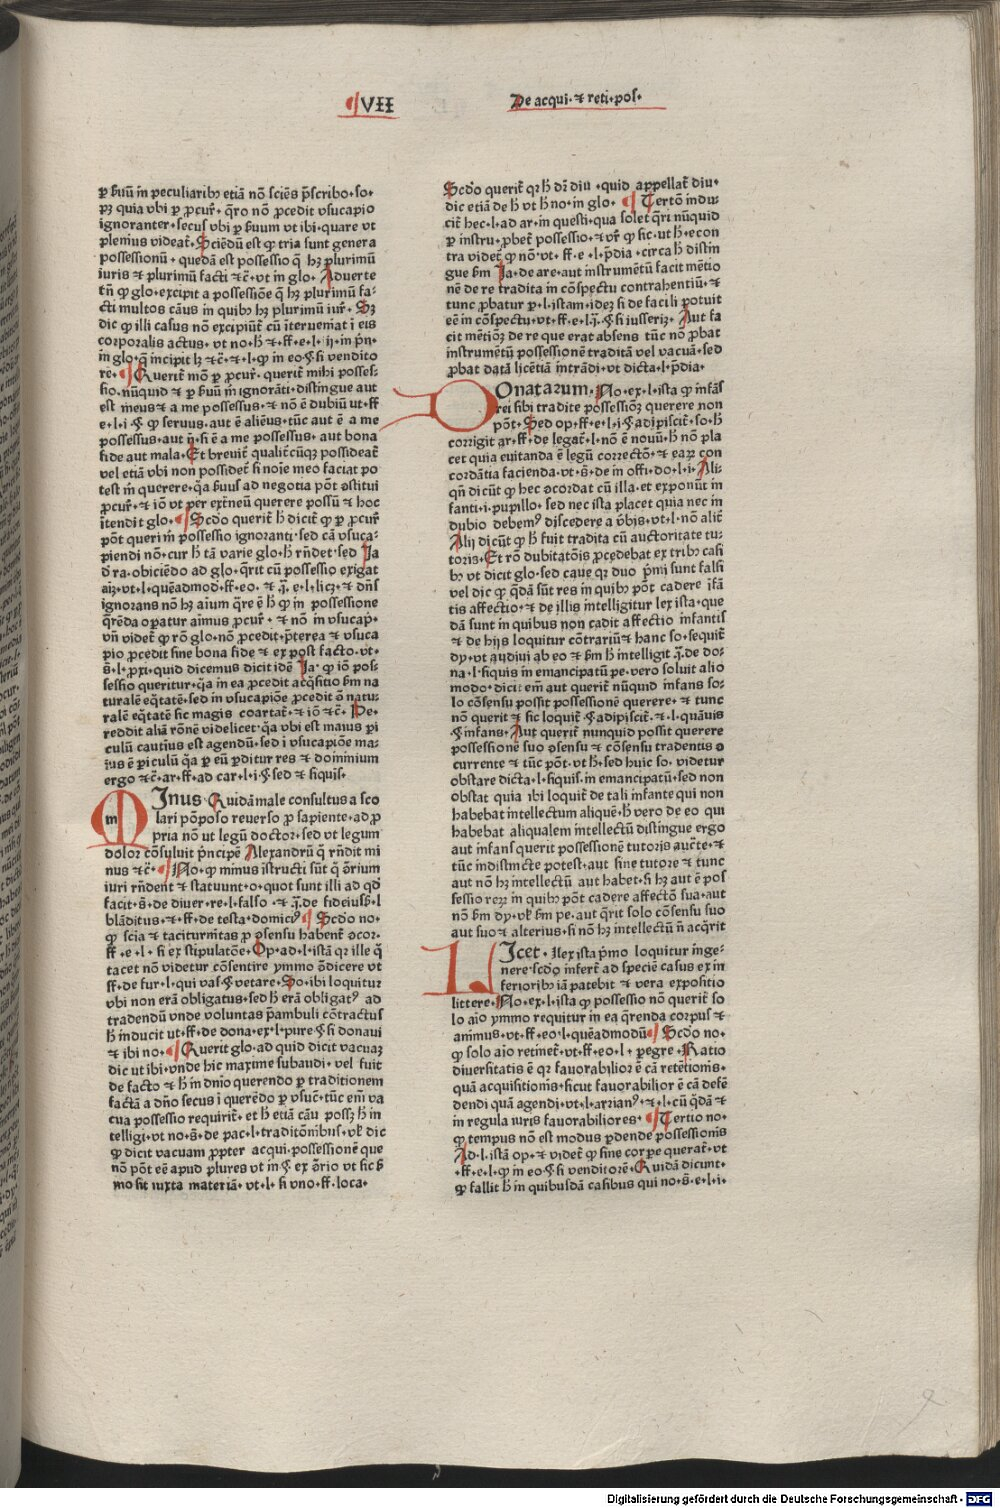 ¶ VII
De acqui· ⁊ reti·pos·
ꝑ ẜuū in peculiaribꝫ etiā nō sciēs p̄scribo·so·
pꝫ quia vbi ꝑ ꝓcur̄· q̄ro nō ꝓcedit vsucapio
ignoranter·secus vbi ꝑ ẜuum vt ibi·quare vt
plenius videat̄· Sciēdū est ꝙ tria sunt genera
possessionū·quedā est possessio q̄ hꝫ plurimū
iuris ⁊ plurimū facti ⁊c̄·vt in glo· Aduerte
tn̄ ꝙ glo·excipit a possessiōe q̄ hꝫ plurimū fa-
cti multos cāus in quibꝫ hꝫ plurimū iur̄· Sꝫ
dic ꝙ illi casus nō excipiūt̄ cū īterueniat ī eis
corporalis actus·vt no·h̄ ⁊·ff·e·l·ij·in pn̄·
in glo·q̄ incipit lꝫ ⁊c̄·⁊·l·ꝙ in eo·§·si vendito
re· ¶ Querit̄ mō ꝑ ꝓcur̄·querit̄ mihi posses-
sio·nūquid ⁊ ꝑ ẜuū m̄ ignorāti·distingue aut
est meus ⁊ a me possessus·⁊ nō ē dubiū vt·ff
e·l·i·§·ꝙ seruus·aut ē alienus·tūc aut ē a me
possessus·aut n̄·si ē a me possessus·aut bona
fide aut mala· Et breuit̄ qualit̄cūqꝫ possideat̄
vel etiā vbi non possidet̄ si noīe meo faciat po
test m̄ querere·q̄a ẜuus ad negotia pōt ꝯstitui
ꝓcur̄·⁊ iō vt per extn̄eū querere possū ⁊ hoc
ītendit glo· ¶ Scd̄o querit̄ h̄ dicit̄ ꝙ ꝑ ꝓcur̄
pōt queri m̄ possessio ignoranti·sed cā vsuca-
piendi nō·cur h̄ tā varie glo·h̄ rn̄det·sed Ja
d̄ ra·obiciēdo ad glo·q̄rit cū possessio exigat
aīꝫ·vt·l·quēadmod·ff·eo·⁊ q̄·e·l·licꝫ·⁊ dn̄s
ignorans nō hꝫ aium q̄re ē h̄ ꝙ in possessione
q̄rēda oꝑatur aimus ꝓcur̄·⁊ nō in vsucap̄·
vn̄ videt̄ ꝙ rō glo·nō ꝓcedit·p̄terea ⁊ vsuca
pio ꝓcedit sine bona fide ⁊ ex post facto·vt·
s̄·l·ꝓxi·quid dicemus dicit idē Ja· ꝙ iō pos-
sessio queritur·q̄a in ea ꝓcedit acq̄sitio ẜm na
turalē eq̄tatē·sed in vsucapiōe ꝓcedit ꝯ natu-
ralē eq̄tatē sic magis coartat̄·⁊ iō ⁊c̄· Ue-
reddit aliā rōnē videlicet·q̄a vbi est maius ꝑi
culū cautius est agendū·sed ī vsucapiōe ma-
ius ē ꝑiculū q̄a ꝑ eū ꝑditur res ⁊ dominium
ergo ⁊c̄·ar·ff·ad car·l·i·§·sed ⁊ siquis·
MInus· Quidā male consultus a sco
lari pōposo reuerso ꝓ sapiente·ad ꝓ
pria nō ut legū doctor·sed vt legum
dolor cōsuluit p̄ncipē Alexandrū q̄ rn̄dit mi
nus ⁊c̄· ¶ No·ꝙ minus īstructi sūt q̄ ꝯrium
iuri rn̄dent ⁊ statuunt·o·quot sunt illi ad qd̄
facit·s̄·de diuer·re·l·falso·⁊·q̄·de fideiusẜ·l·
blāditus·⁊·ff·de testa·domiciꝰ· ¶ Scd̄o no·
ꝙ scia ⁊ taciturnitas ꝓ ꝯsensu habent̄ ꝯcor·
ff·e·l·si ex stipulatōe· Op·ad·l·istā qꝛ ille q̄
tacet nō videtur cōsentire ymmo ꝯdicere vt
ff·de fur·l·qui vas·§·vetare· So·ibi loquitur
vbi non erā obligatus·sed h̄ erā obligatꝰ ad
tradendū vnde voluntas p̄ambuli cōtractus
h̄ inducit ut·ff·de dona·ex·l·pure·§·si donaui
⁊ ibi no· ¶ Querit glo·ad quid dicit vacuaꝫ
dic ut ibi·vnde hic maxime subaudi·vel fuit
de facto ⁊ h̄ in dn̄io querendo ꝑ traditionem
factā a dn̄o secus ī querēdo ꝑ vsuc̄·tūc em̄ va
cua possessio requirit̄·et h̄ etiā cāu possꝫ h̄ in
telligi·vt no·s̄·de pac·l·traditōnibus·vł dic
ꝙ dicit vacuam ꝓpter acqui·possessionē que
nō pōt eē apud plures vt in·§·ex ꝯrio vt sic ẜ
mo sit iuxta materiā·vt·l·si vno·ff·loca·
Scd̄o querit̄ qꝛ h̄ dn̄ diu·quid appellat̄ diu·
dic etiā de h̄ vt h̄ no·in glo· ¶ Tertō indu
cit̄ hec·l·ad ar·in questi·qua solet q̄ri nūquid
ꝑ instru·ꝓbet̄ possessio·⁊ vr̄ ꝙ sic·ut h̄·econ
tra videt̄ ꝙ nō·vt·ff·e·l·p̄dia·circa h̄ distin
gue ẜm Ja·de are·aut instrumētū facit mētio
nē de re tradita in cōspectu contrahentiū·⁊
tunc ꝓbatur ꝑ·l·istam·ideꝫ si de facili potuit
eē in cōspectu·vt·ff·e·l·q̄·§·si iusseriꝫ· Aut fa
cit mētiōꝫ de re que erat absens tūc nō ꝓbat
instrumētū possessionē traditā vel vacuā·sed
ꝓbat datā licētiā intrādi·vt dicta·l·p̄dia·
DOnatarum· No·ex·l·ista ꝙ infās
rei sibi tradite possessiōꝫ querere non
pōt· Sed op·ff·e·l·i·§·adipiscit̄·so·h̄
corrigit ar·ff·de legat̄·l·nō ē nouū·h̄ nō pla
cet quia euitanda ē legū correctō·⁊ eaꝝ con
cordātia facienda·vt·s̄·de in offi·do·l·i· Ali
qn̄ dicūt ꝙ hec ꝯcordat cū illa·et exponūt in
fanti·i·pupillo·sed nec ista placet quia nec in
dubio debemꝰ discedere a v̄bis·vt·l·nō alit̄
Alij dicūt ꝙ h̄ fuit tradita cū auctoritate tu-
toris· Et rō dubitatōis ꝓcedebat ex tribꝫ casi
bꝫ vt dicit glo·sed caue qꝛ duo p̄mi sunt falsi
vel dic ꝙ q̄dā sūt res in quibꝫ pōt cadere īfā
tis affectio·⁊ de illis intelligitur lex ista·que
dā sunt in quibus non cadit affectio infantis
⁊ de hijs loquitur cōtrariū ⁊ hanc so·sequit̄
dy·vt audiui ab eo ⁊ ẜm h̄ intelliḡ q̄·de do·
na·l·siquis in emancipatū pe·vero soluit alio
modo·dici·em̄ aut querit̄ nūquid infans so-
lo cōsensu possit possessionē querere·⁊ tunc
nō querit ⁊ sic loquit̄·§·adipiscit̄·⁊·l·quāuis
§·infans· Aut querit̄ nunquid possit querere
possessionē suo ꝯsensu ⁊ cōsensu tradentis ꝯ
currente ⁊ tūc pōt·vt h̄·sed huic so·videtur
obstare dicta·l·siquis·in emancipatū·sed non
obstat quia ibi loquit̄ de tali infante qui non
habebat intellectum aliquē·h̄ vero de eo qui
habebat aliqualem intellectū distingue ergo
aut infans querit possessionē tutoris auc̄te·⁊
tūc indistincte potest·aut sine tutore ⁊ tunc
aut nō hꝫ intellectū aut habet·si hꝫ aut ē pos
sessio reꝝ in quibꝫ pōt cadere affectō sua·aut
nō ẜm dy·vł ẜm pe·aut q̄rit solo cōsensu suo
aut suo ⁊ alterius·si nō hꝫ intellectū n̄ acq̄rit
LIcet· lex ista p̄mo loquitur inge-
nere·scd̄o infert̄ ad speciē casus ex in
ferioribꝫ iā patebit ⁊ vera expositio
littere· No·ex·l·ista ꝙ possessio nō querit̄ so
lo aīo ymmo requitur in ea q̄renda corpus ⁊
animus·vt·ff·eo·l·quēadmodū ¶ Scd̄o no·
ꝙ solo aīo retinet̄·vt·ff·eo·l·ꝑegre· Ratio
diuersitatis ē qꝛ fauorabilior ē cā retētionis·
quā acquisitionis·sicut fauorabilior ē cā defē
dendi quā agendi·vt·l·arrianꝰ·⁊·l·cū q̄dā ⁊
in regula iuris fauorabiliores· ¶ Tertio no·
ꝙ tempus nō est modus ꝑdende possessionis
Ad·l·istā op·⁊ videt̄ ꝙ sine corꝑe querat̄·vt
·ff·e·l·ꝙ in eo·§·si venditorē· Quidā dicunt·
ꝙ fallit h̄ in quibusdā casibus qui no·s̄·e·l·i·
Digitalisierung gefördert durch die Deutsche Forschungsgemeinschaft - DFG